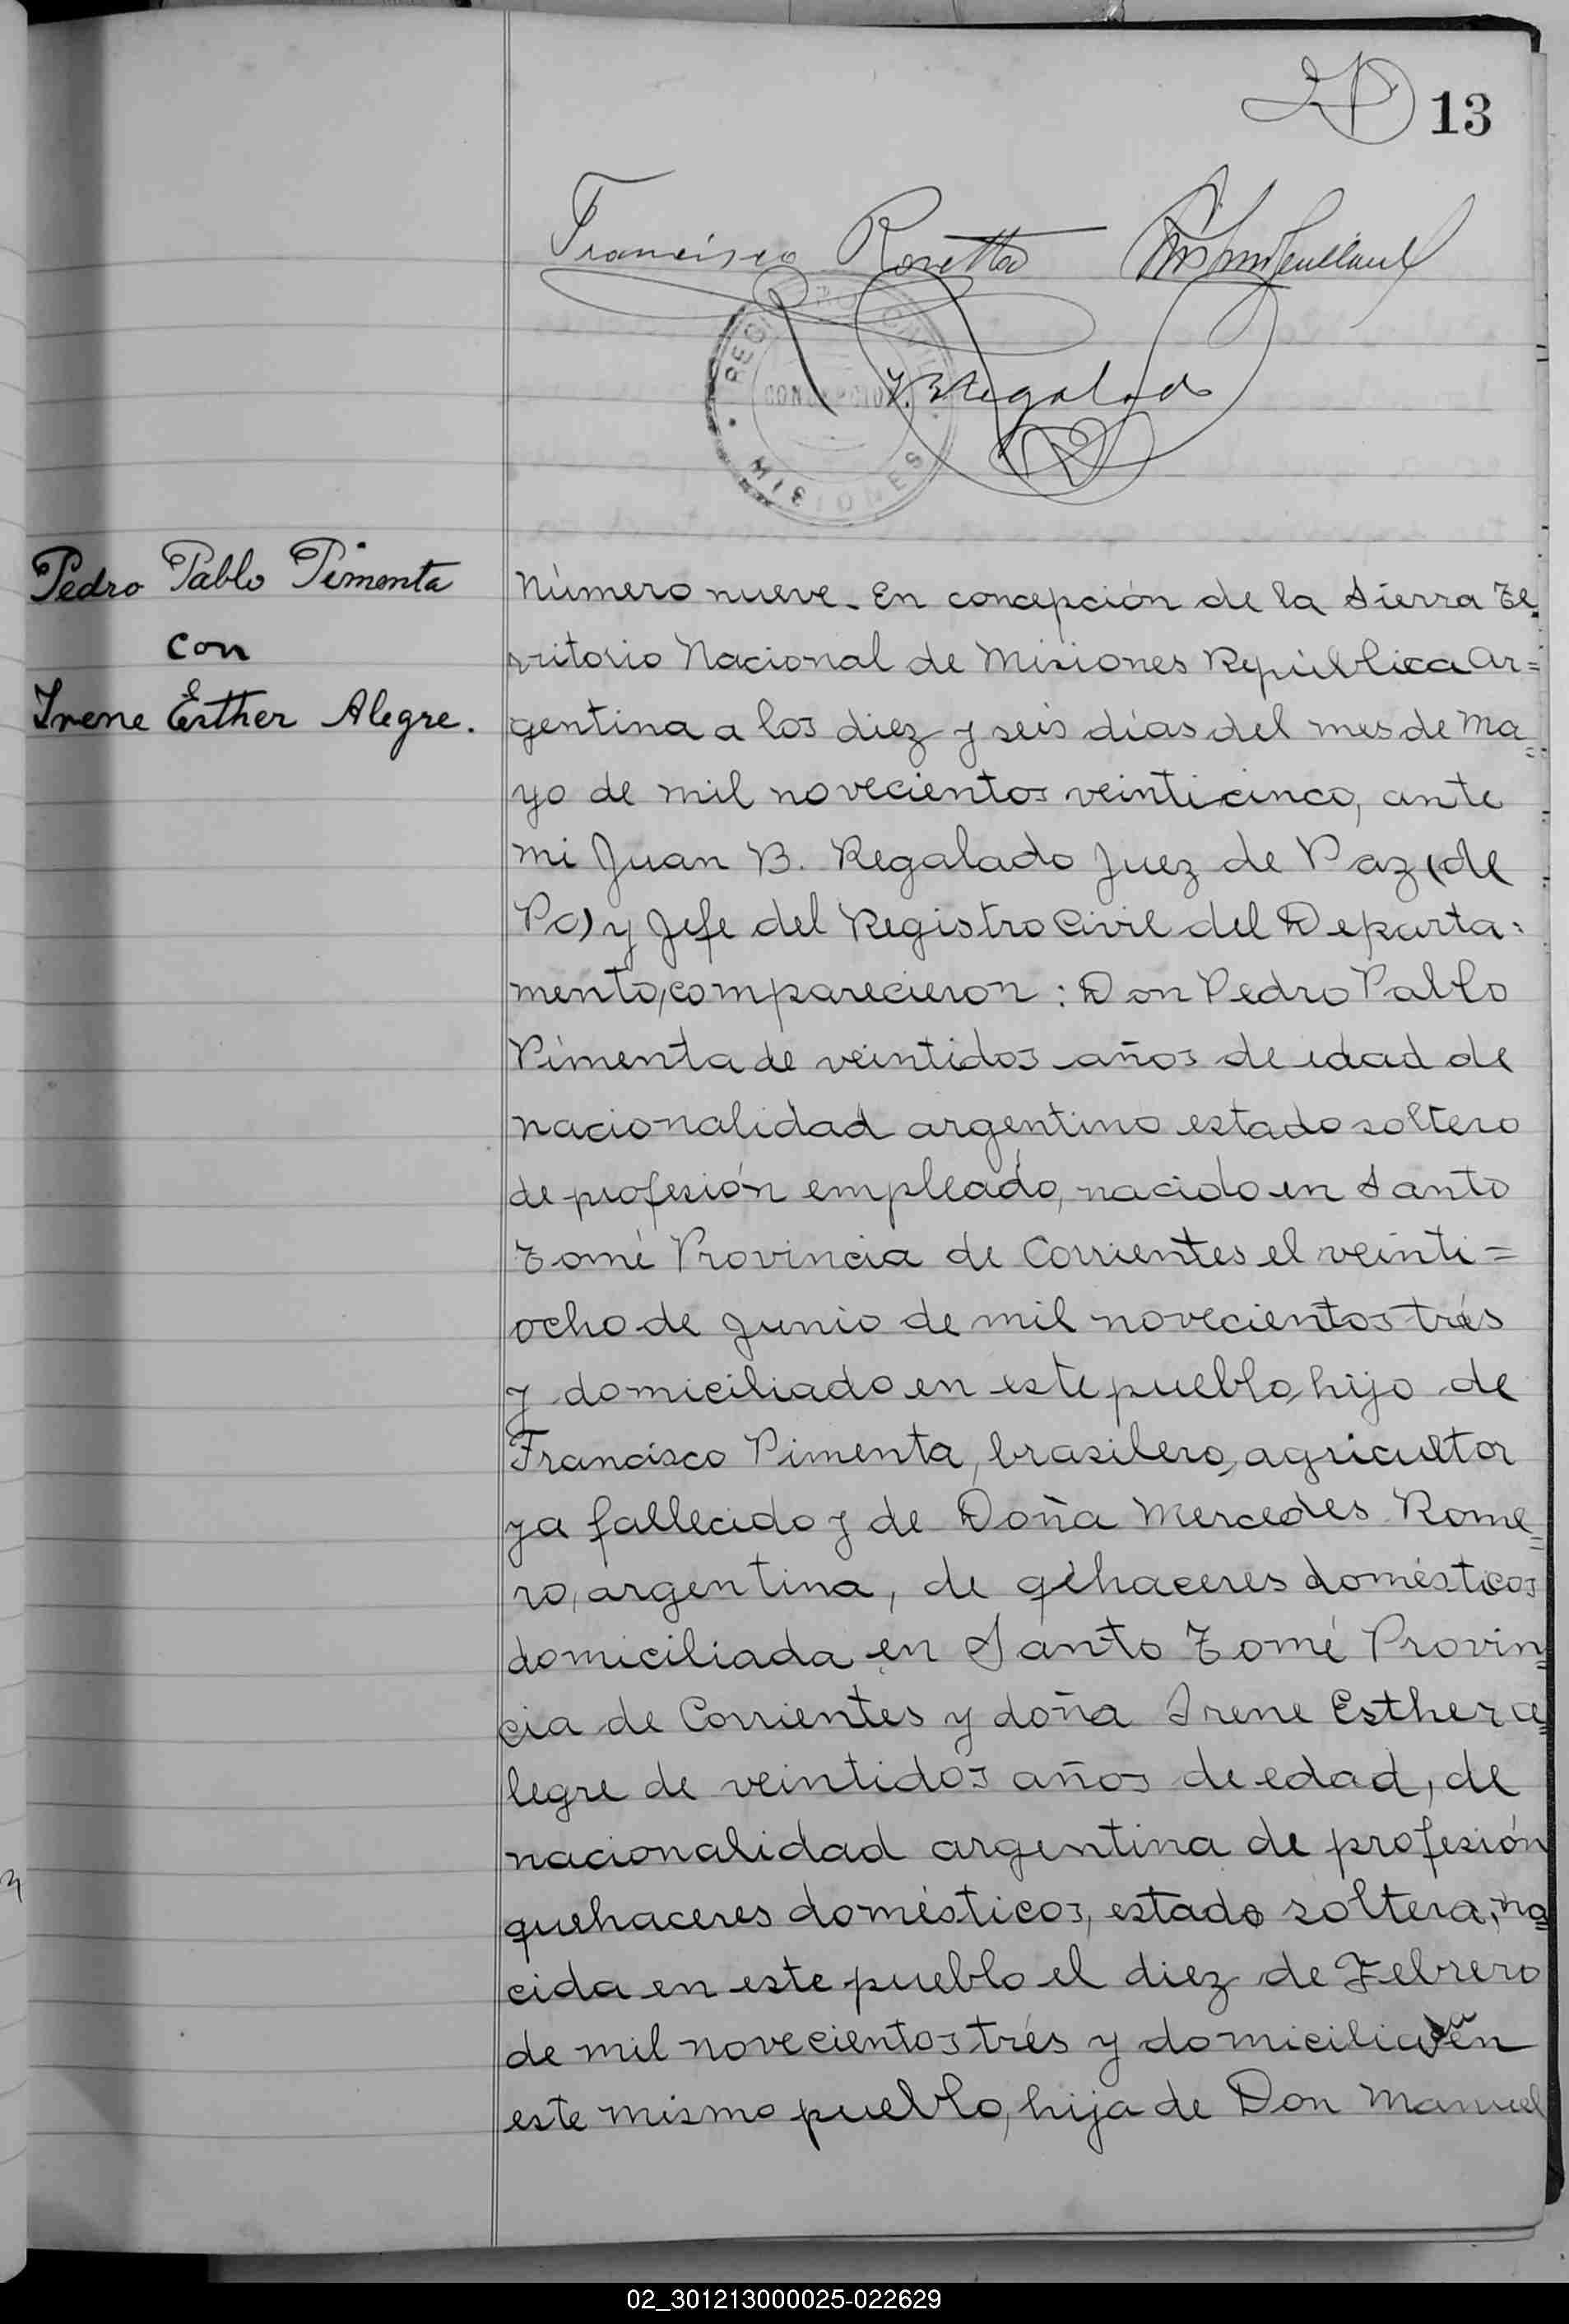 13
Francisco Rosetta
REGISTRO CIVIL
CONCEPCION
MISIONES
J. B. Regalado
Pedro Pablo Pimenta
con
Irene Esther Alegre.
Número nueve. En concepción de la Sierra Te-
rritorio Nacional de Misiones República Ar=
gentina a los diez y seis días del mes de Ma=
yo de mil novecientos veinticinco, ante
mi Juan B. Regalado Juez de Paz (de
P0) y Jefe del Registro Civil del Departa=
mento, comparecieron: Don Pedro Pablo
Pimenta de veintidos años de edad de
nacionalidad argentino estado soltero
de profesión empleado, nacido en Santo
Tomé Provincia de Corrientes el veinti=
ocho de Junio de mil novecientos trés
y domiciliado en este pueblo, hijo de
Francisco Pimenta, brasilero, agricultor
ya fallecido y de Doña Mercedes Rome=
ro, argentina, de qehaceres domésticos
domiciliada en Santo Tomé Provin=
cia de Corrientes y doña Irene Esther a=
legre de veintidos años de edad, de
nacionalidad argentina de profesión
quehaceres domésticos, estado soltera, na=
cida en este pueblo el diez de Febrero
de mil novecientos trés y domicilia en
este mismo pueblo, hija de Don Manuel
02_301213000025-022629